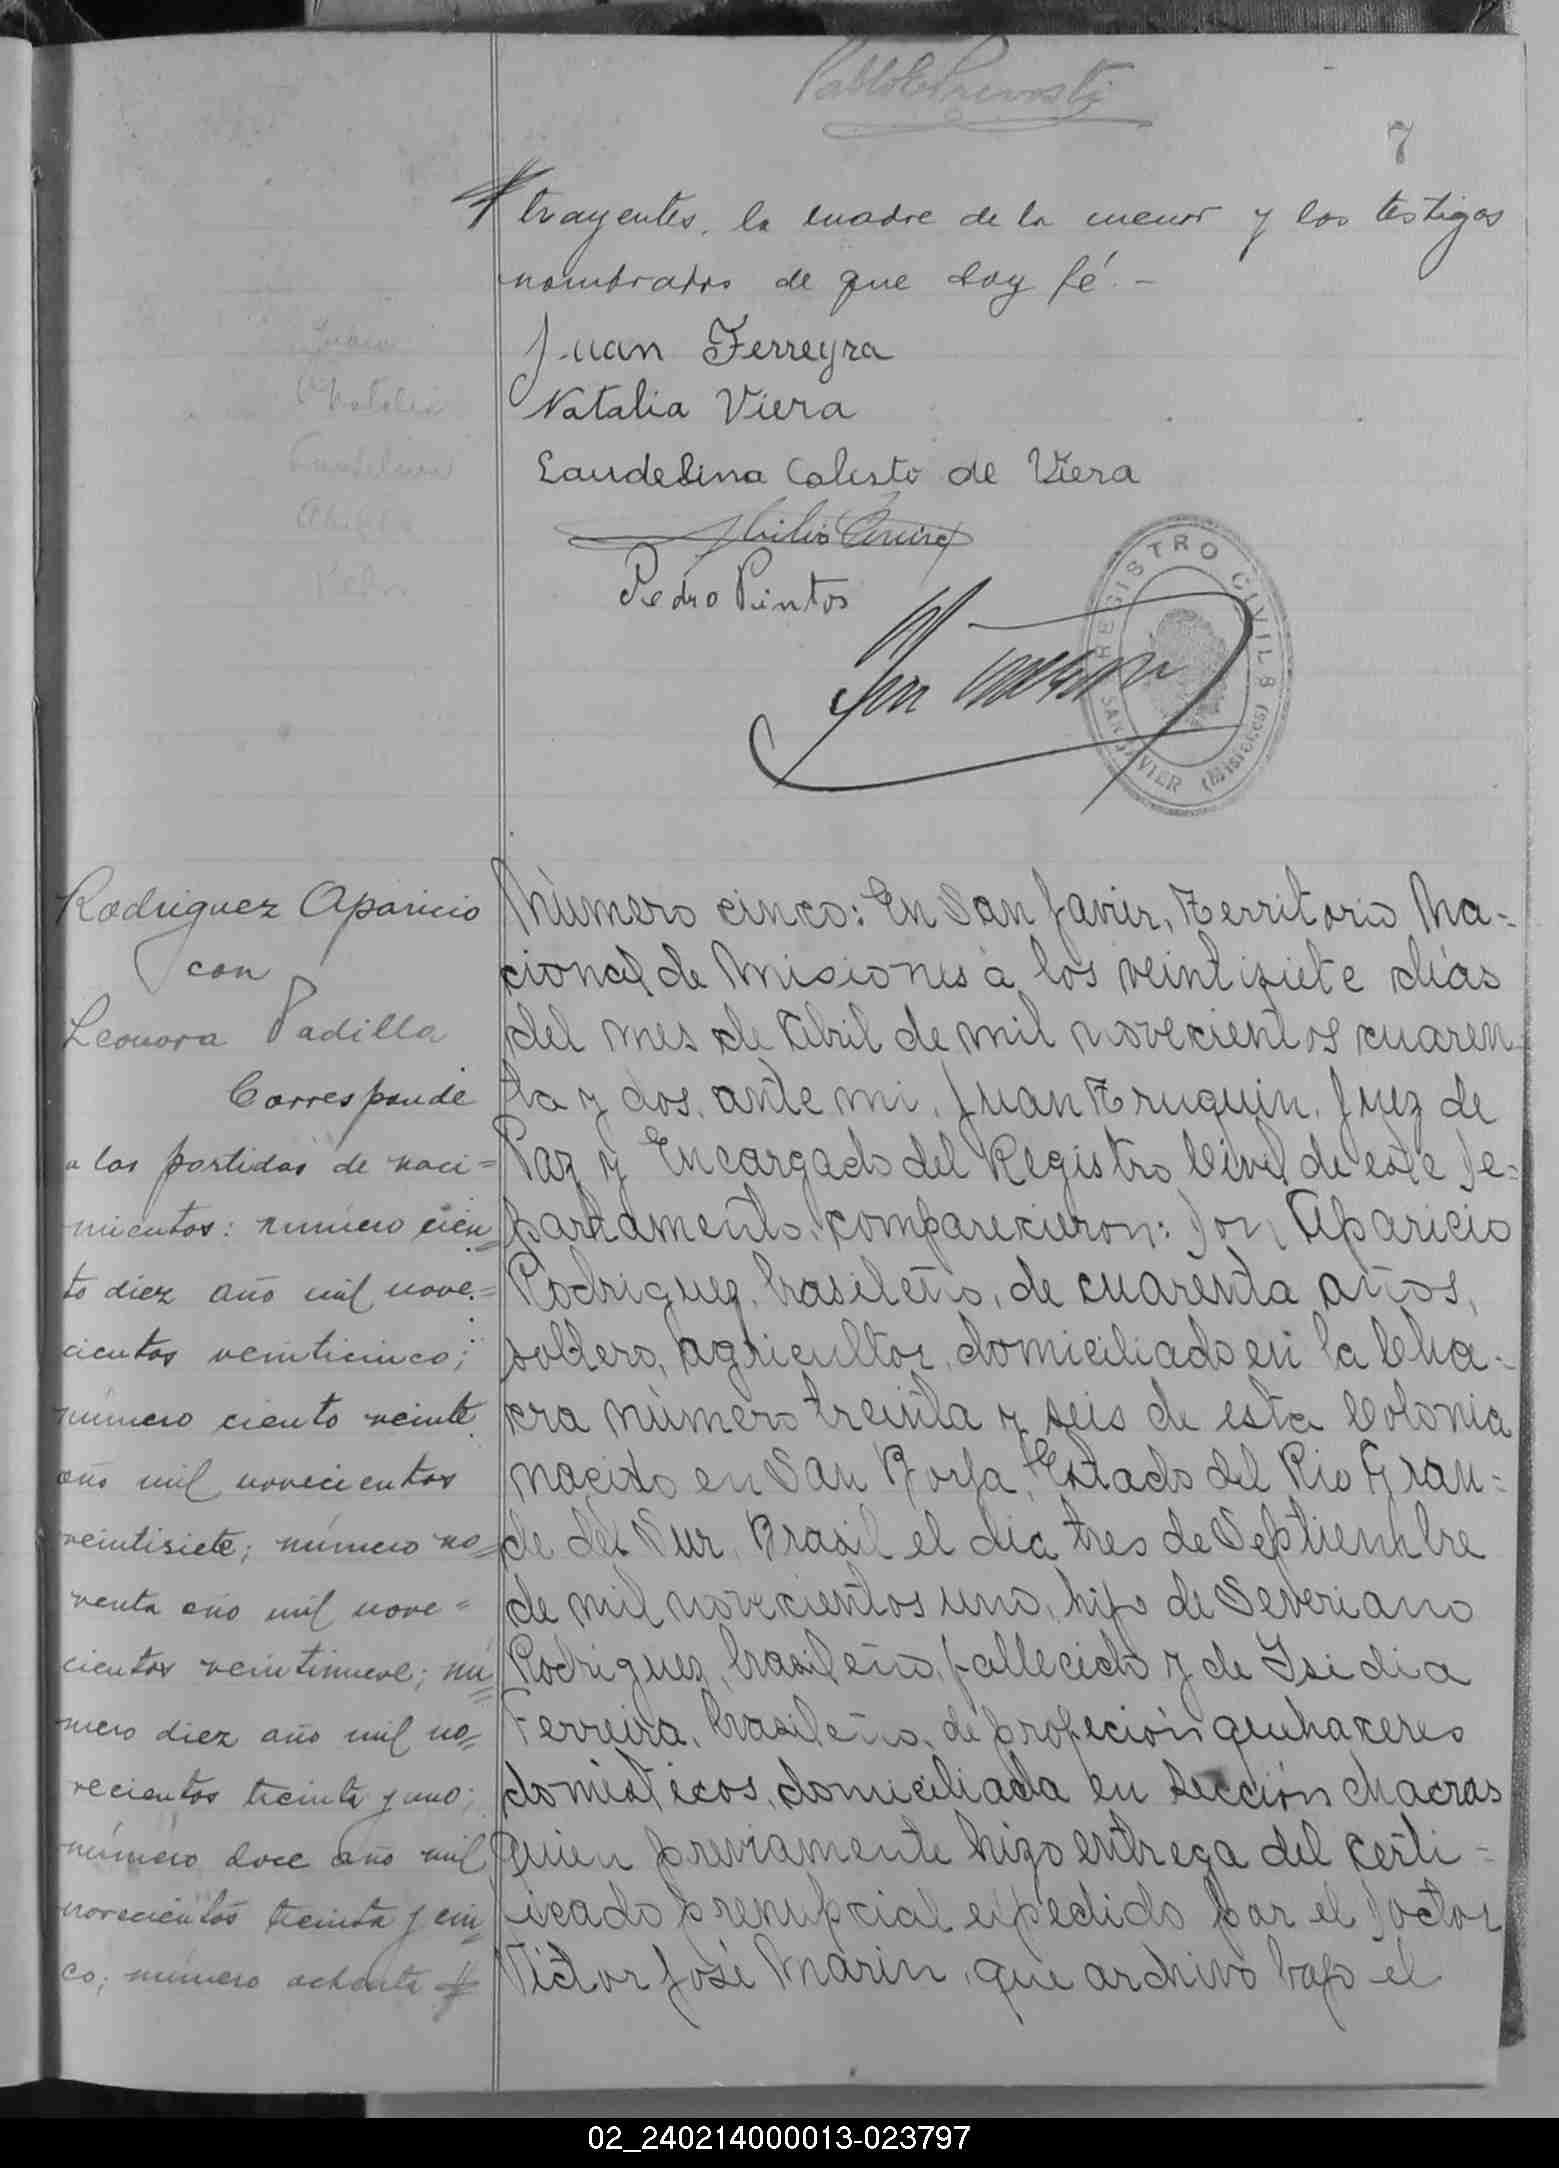 7
trayentes, la madre de la menor y los testigos
nombrados de que doy fé. -
Juan Ferreyra
Natalia Viera
Laudelina Calisto de Viera
Pedro Pintos
REGISTRO CIVIL
SAN JAVIER (Misiones)
Rodriguez Aparicio
con
Leonora Padilla
Corresponde
a las partidas de naci=
mientos: número cien=
to diez año mil nove=
cientos veinticinco;
número ciento veinte
año mil novecientos
veintisiete; número no=
venta año mil nove=
cientos veintinueve; nú=
mero diez año mil no=
vecientos treinta y uno;
número doce año mil
novecientos treinta y cin=
co; número ochenta
Número cinco: En San Javier, Territorio Na-
cional de Misiones á los veintisiete días
del mes de Abril de mil novecientos cuaren-
ta y dos, ante mi, Juan Truquin, Juez de
Paz y Encargado del Registro Civil de este De-
partamento, comparecieron: Don Aparicio
Rodriguez, brasileño, de cuarenta años,
soltero, agricultor, domiciliado en la Cha-
cra número treinta y seis de esta Colonia
nacido en San Borja, Estado del Rio Gran-
de del Sur, Brasil el día tres de Septiembre
de mil novecientos uno, hijo de Severiano
Rodriguez, brasileño, fallecido y de Isidia
Ferreira, brasileña, de profeción quehaceres
domésticos, domiciliada en sección chacras
quien previamente hizo entrega del certi-
ficado prenupcial expedido por el Doctor
Victor José Marin, que archivo bajo el
02_240214000013-023797